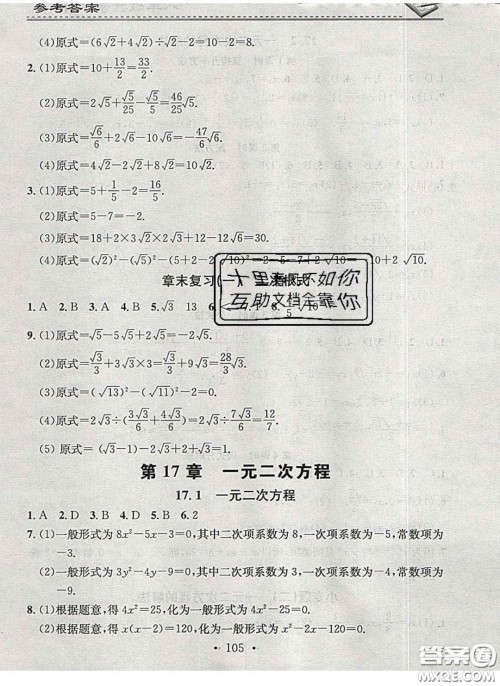 参考答案
(4)原式=(6√2+4√2)÷√2-2=10-2=8.
2. (1)原式=10+13/2=33/2.
(2)原式=2√5+√5/25-√5/5=46/25√5.
(3)原式=√6/6+2√6-10√6=-47/6√6.
(4)原式=4√2-2√2+8√2=10√2.
3. (1)原式=5+1/5-2=16/5.
(2)原式=5-7=-2.
(3)原式=18+2×3√2×2√3+12=30+12√6.
章末复习(一)
十里春风不如你
互助文档全靠你
1. A 2. B 3. A 4. B 5. √3 13
9. (1)原式=5√5-2√5=3√5.
(2)原式=√3/3+3√3+2√3+4√3=28/3√3.
(3)原式=(√13)²-(√11)²=2.
(4)原式=2√3÷(2√3/3+4√3/3)=2√3÷6√3/3=
(5) 原式=(√3-1)(√3+1)=(√3)²-1=2.
第 17 章 一元二次方程
17.1 一元二次方程
1. A 2. D 3. D 4. D 5. B 6. 2
7. (1)一般形式为 8x²-5x-3=0,其中二次项系数为 8,一次项系数为-5,常数项为
-3.
(2)一般形式为 3y²-4y-9=0,其中二次项系数为 3,一次项系数为-4,常数项为
-9.
8. (1)根据题意,得 4x²=25,化为一般形式为 4x²-25=0.
(2)根据题意,得 x(x-2)=120,化为一般形式为 x²-2x-120=0.
· 105 ·
答案圈
MXQE.COM